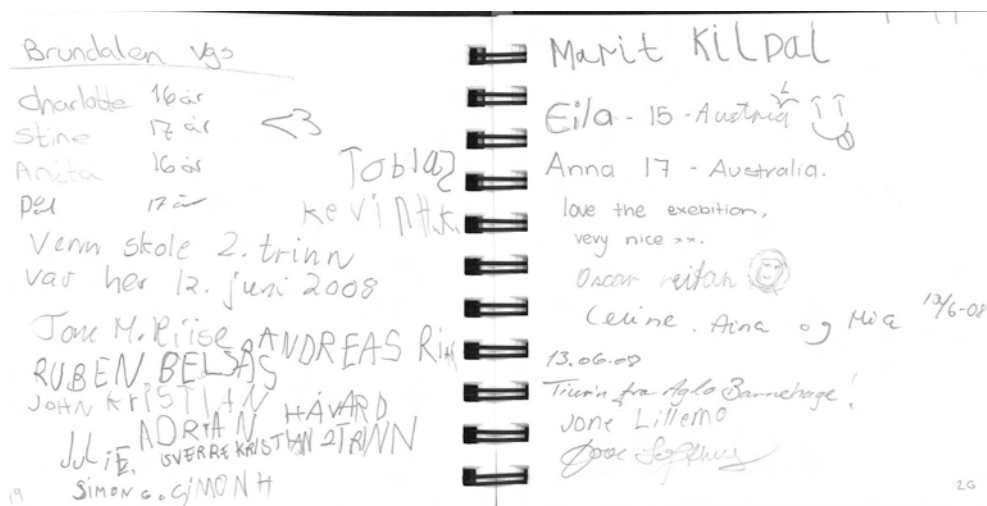 Brundalen Vgs
Charlotte 16 år
Stine 17 år <3
Anita 16 år
Pål 17 år
Tobias
Kevin H.K.
Venn skole 2. trinn
var her 12. juni 2008
Tone M. Riise ANDREAS
RUBEN BELSÅS
JOHN KRISTIAN HÅVARD
ADRIAN
JULIE. SVERRE KRISTIAN 2 TRINN
SIMON G. SIMON H
19
Marit Kilpal
Eila - 15 - Austria
Anna 17 - Australia.
love the exebition,
very nice xx.
Oscar reitan
Celine. Aina og Mia 12/6-08
13.06.08
fra Aglo Barnehage!
Jone Lillemo
20